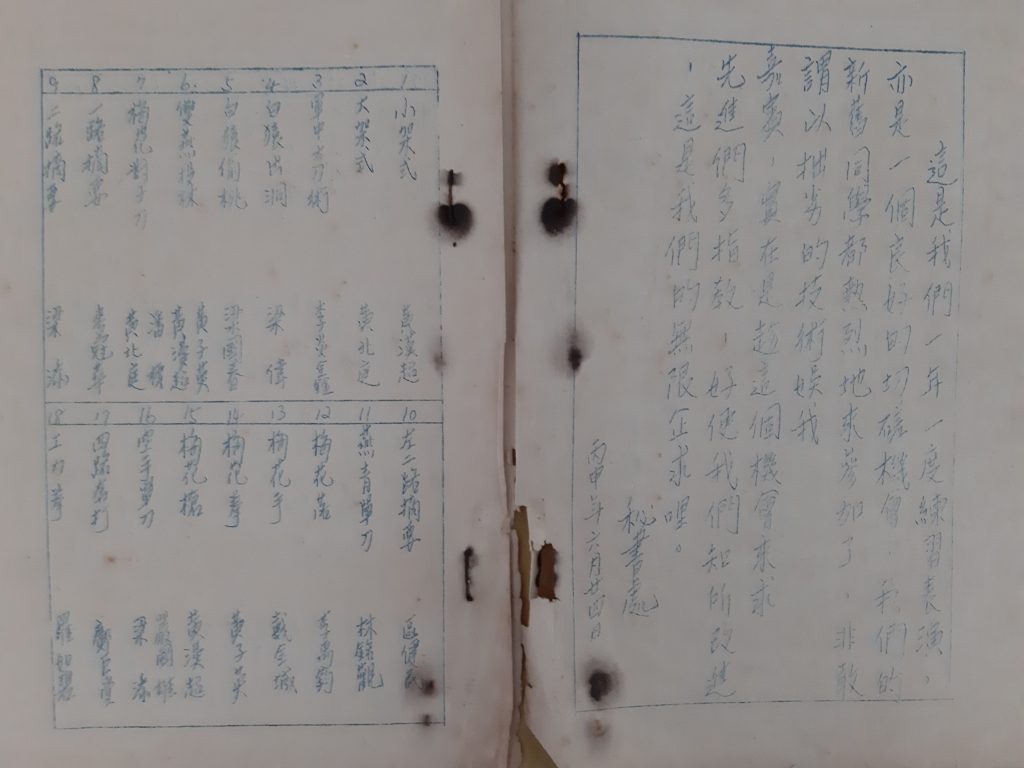 這是我們一年一度練習表演，
亦是一個良好的切磋機會，我們的
新舊同學都熱烈地來參加了，非敢
謂以拙劣的技術娛我
嘉賓，實在是趁這個機會來求
先進們多指教，好使我們知所改進
，這是我們的無限企求哩。
秘書處
丙申年六月廿四日
1 小架式 黃漢超
2 大架式 黃北庭
3 軍中大刀術 李
4 白猿出洞 梁偉
5 白猿偷桃 梁國春
6 雙燕 黃子英 黃漢超
7 梅花對子刀 潘 黃北庭
8 一路摘要 李冠華
9 二路摘要 梁添
10 左二路摘要 區健民
11 燕青單刀 林鏡觀
12 梅花落 李萬鈞
13 梅花手 戴
14 梅花拳 黃子英
15 梅花樁 黃漢超
16 空手奪刀 嚴國雄 梁添
17 四路奔打
18 工力拳 羅